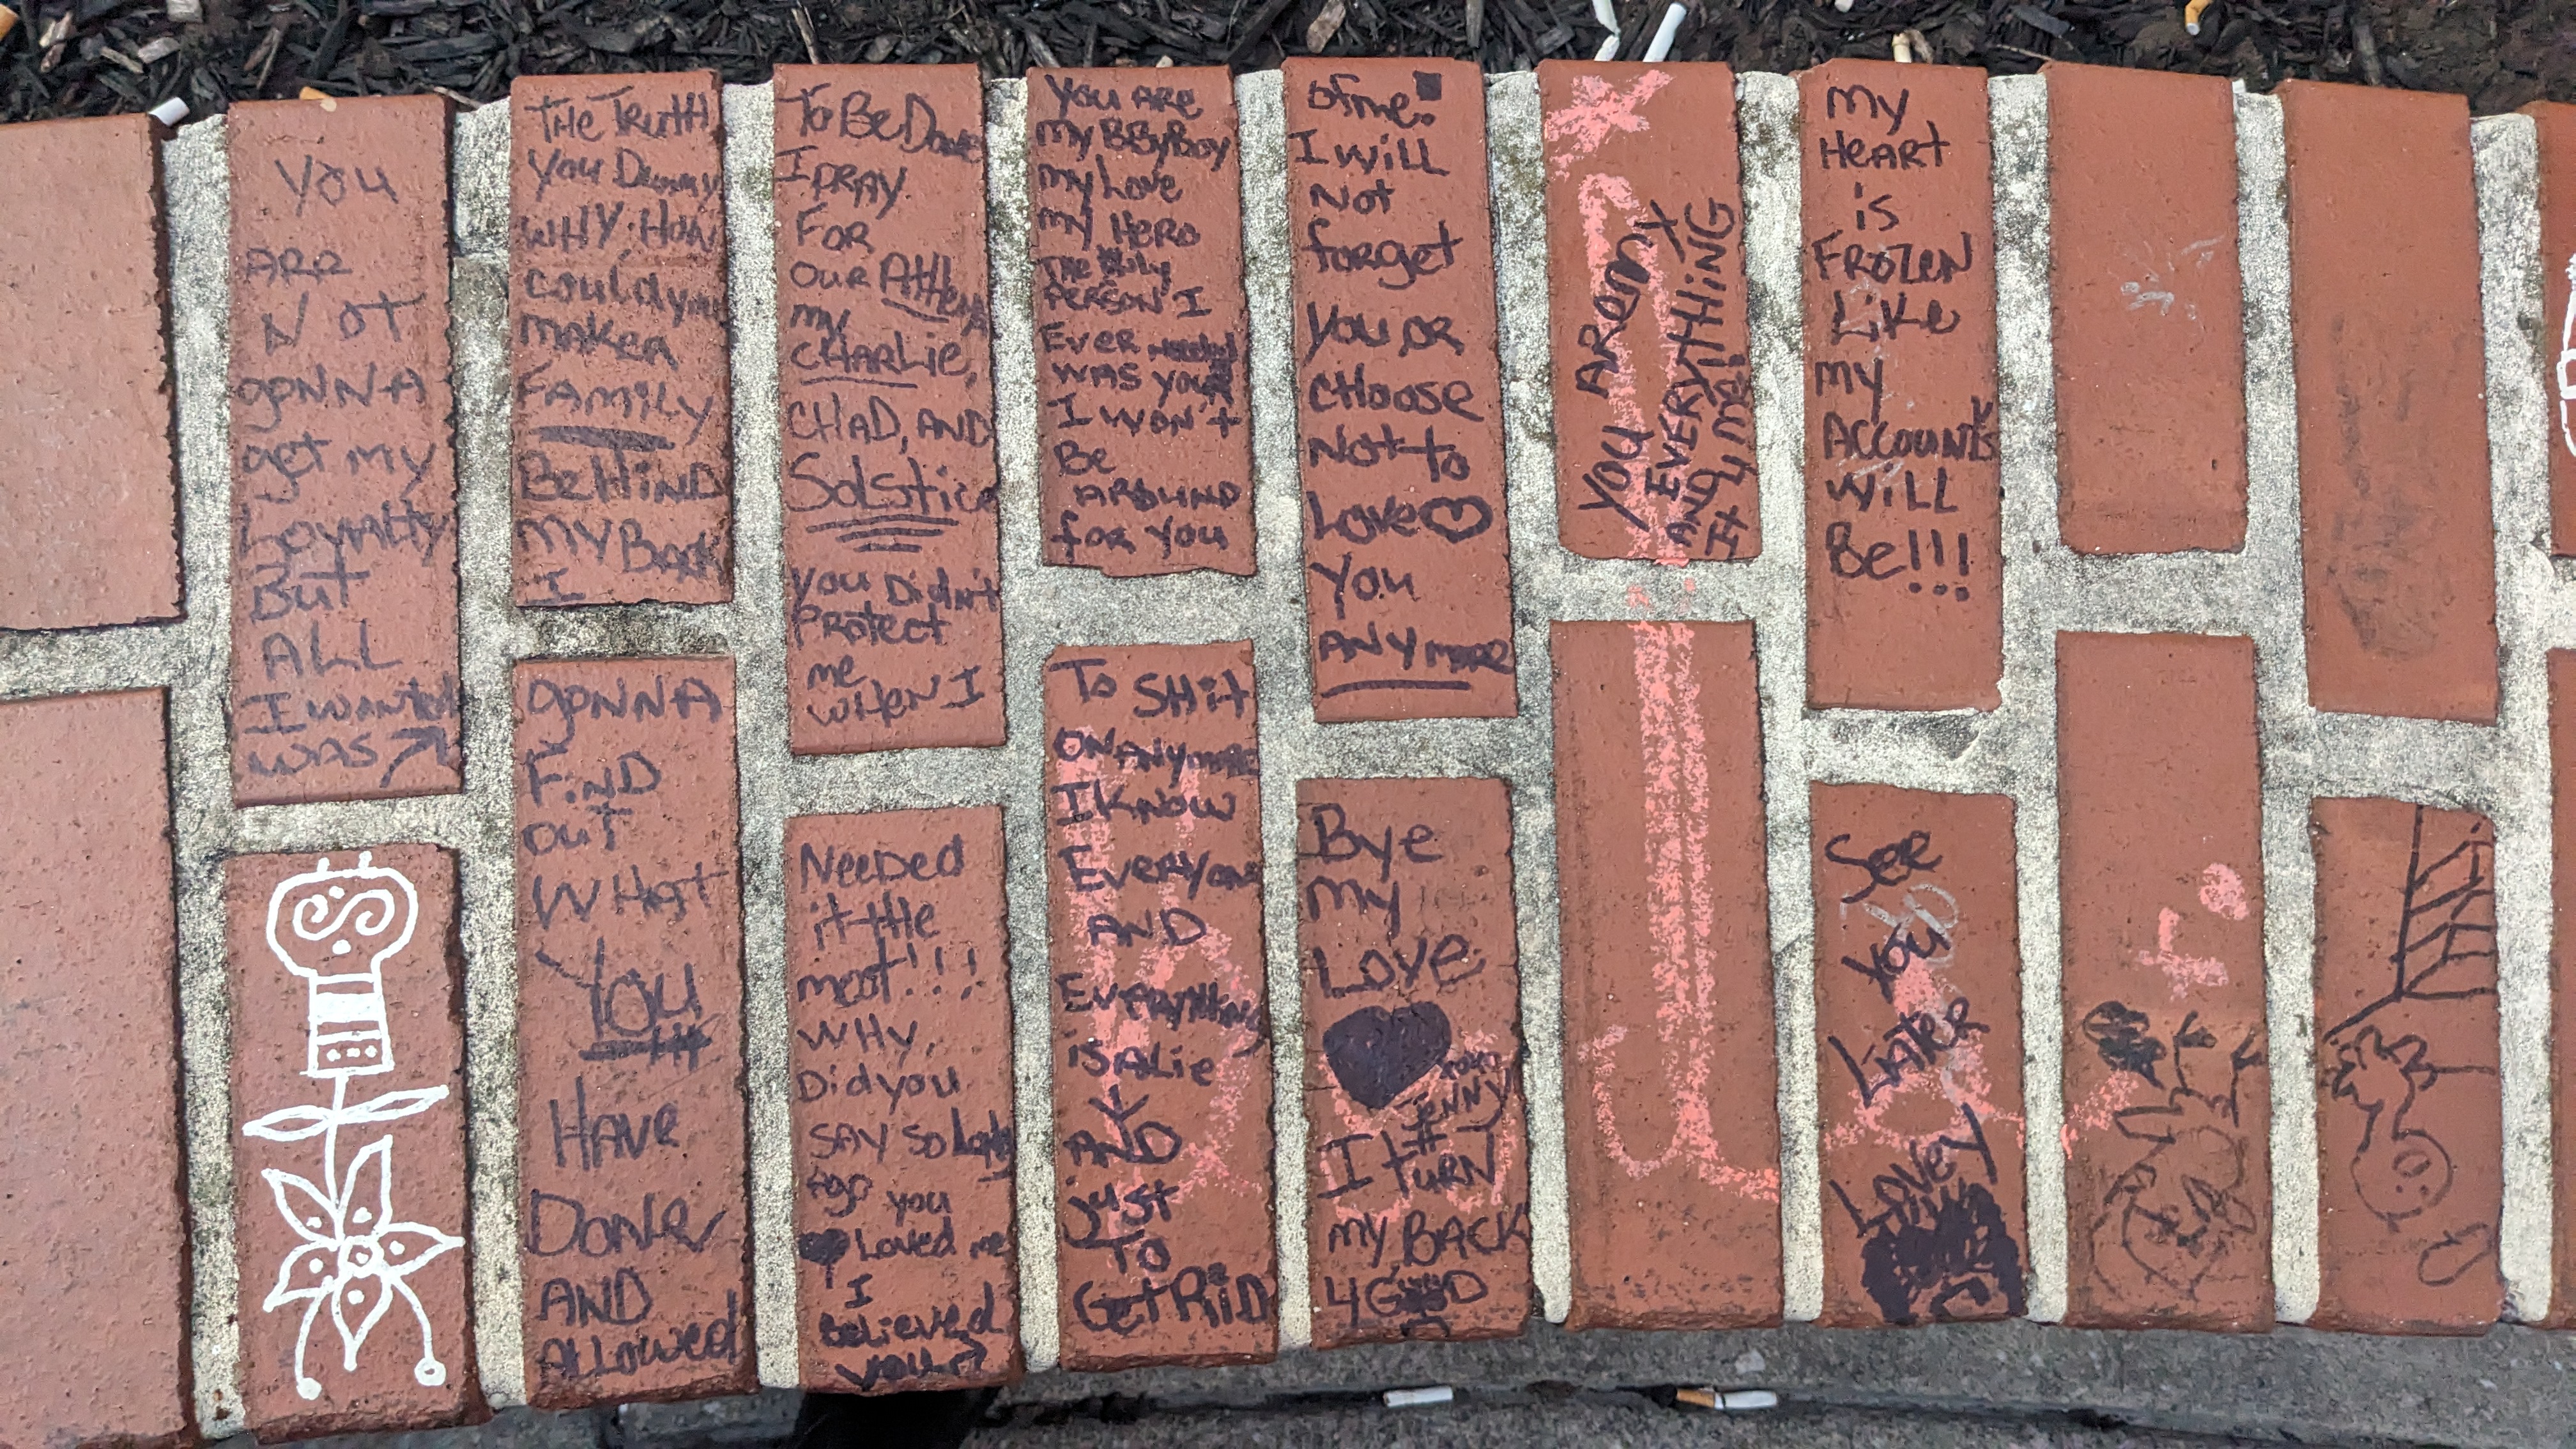 You
ARE
NOT
gonna
get my
Loyalty
But
ALL
I wanted
was
THE TRUTH
you Dummy
WHY. HOW
could you
make a
FAMiLY
BeHiND
MY BACK
I
gonna
FiND
out
WHat
YOU
HAVE
Done
AND
ALLowed
To Be Done
I PRAY
FOR
OUR Athena
my
CHARLie,
CHAD, AND
Solstice
you Didn't
PRotect
me
wHeN I
NeeDeD
it tHe
most!!!
WHY,
Did you
SAY SO
you
Loved me
I
Believed
you
YOU ARE
my BByBoy
my Love
my HeRo
THe ONly
PeRSON I
EVeR Needed
WAS you
I won't
Be
AROUND
for you
To SHit
ON ANYmore
I KNOW
EVeRyone
AND
EVeRytHing
iS A Lie
AND
just
To
Get RiD
of me.
I WiLL
Not
forget
you OR
cHoose
Not to
Love
You
ANYmoRe
Bye
My
Love
XOXO
#JENNY
I tuRN
my BACK
4 GooD
YOU ARE MY
EVERYTHING
AND
My
HeARt
is
FROZeN
Like
my
ACCOUNts
WiLL
Be!!!
See
You
Later
Lovey